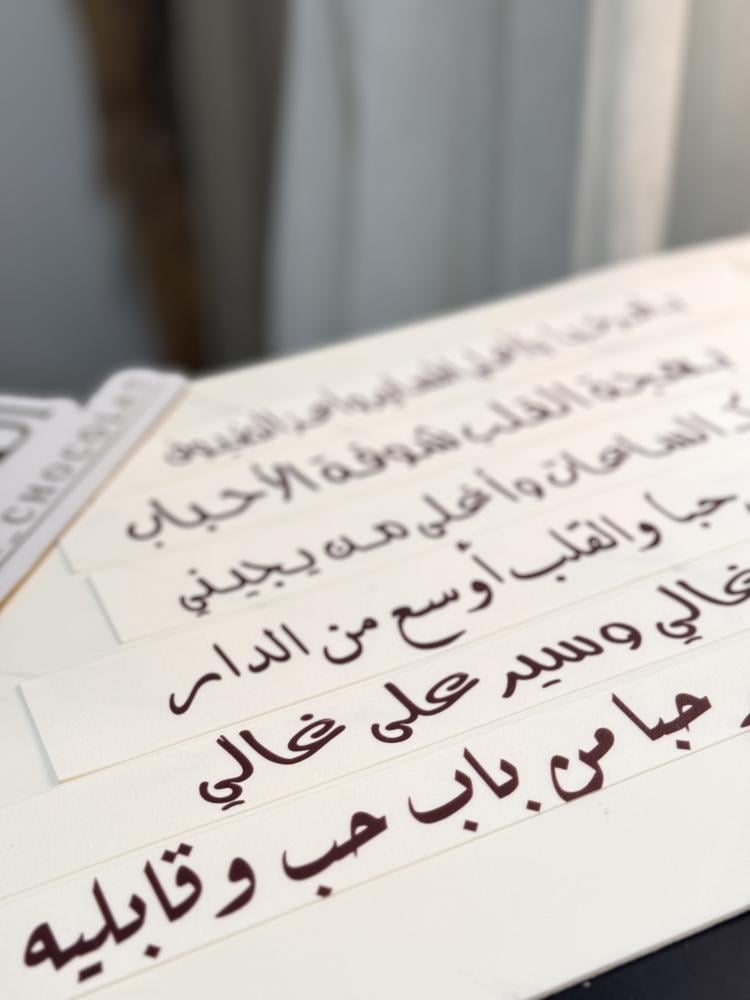 بهجة القلب شوفة الأحباب
ك الساعات وأغلى من يجيني
حبا والقلب أوسع من الدار
غالي وسيد على غالي
حبا من باب حب وقابليه
CHOCOLAT